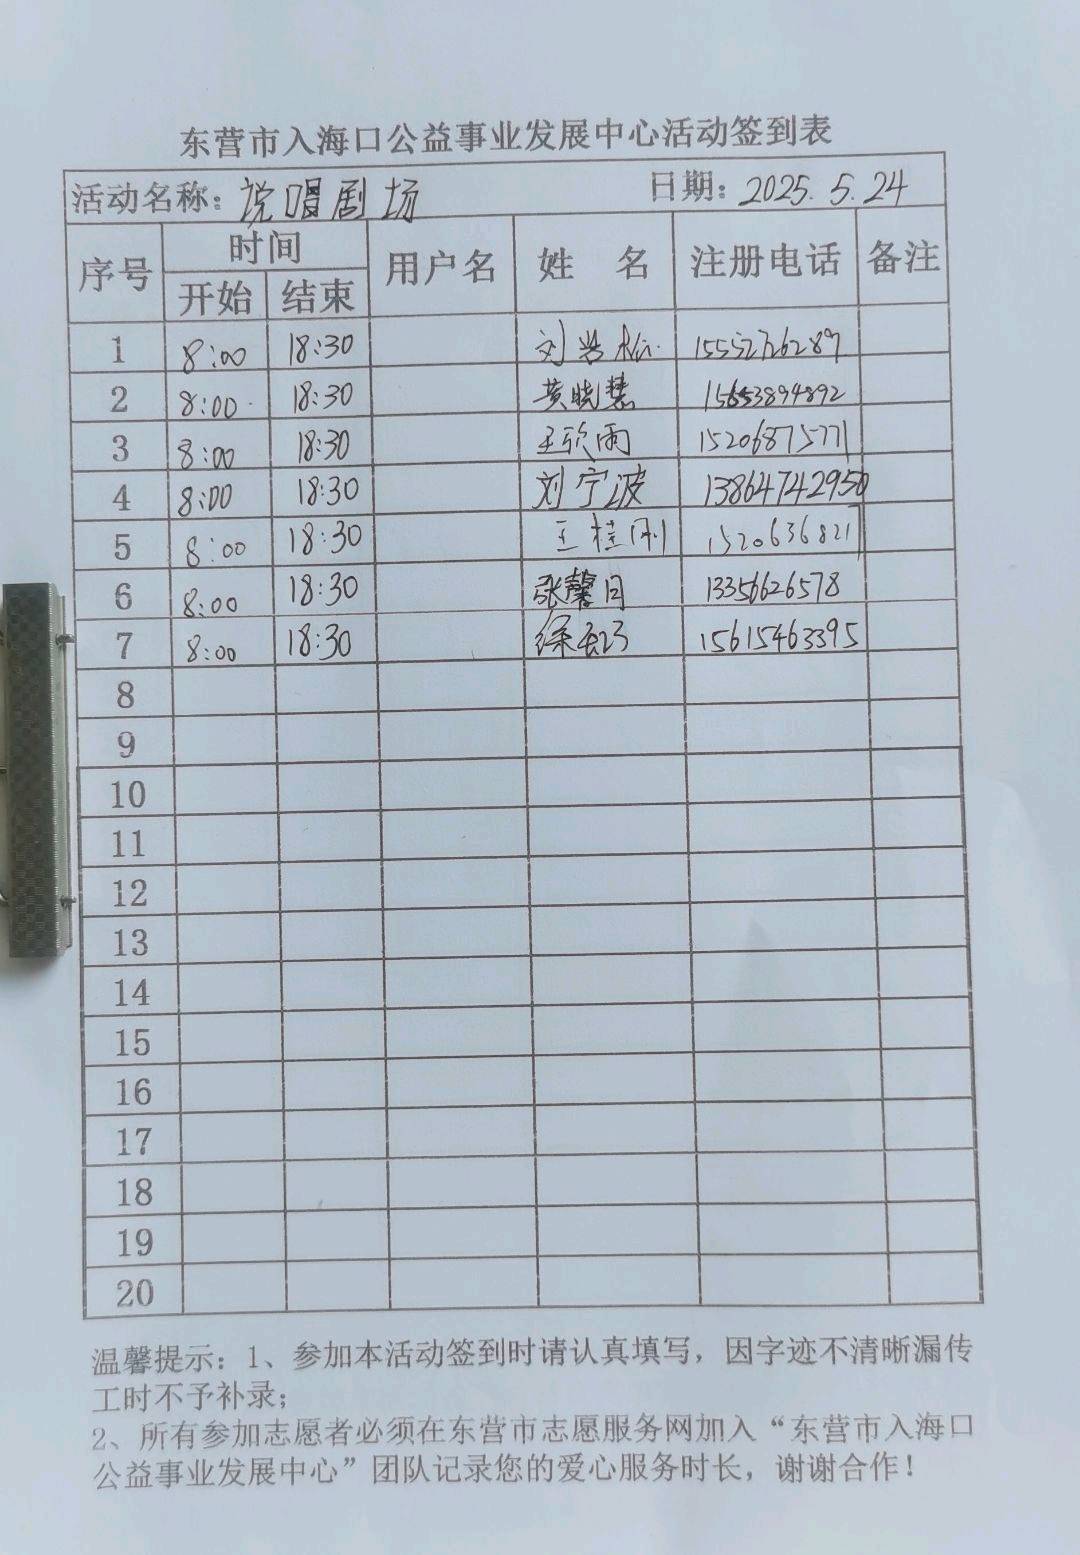 东营市入海口公益事业发展中心活动签到表
活动名称：说唱剧场 日期：2025.5.24
序号 时间 用户名 姓 名 注册电话 备注
开始 结束
1 8:00 18:30 刘 15552726289
2 8:00 18:30 黄晓慧 15653894892
3 8:00 18:30 王欣雨 15206875771
4 8:00 18:30 刘宁波 13864742950
5 8:00 18:30 王桂刚 15206368217
6 8:00 18:30 张馨月 13356626578
7 8:00 18:30 徐 15615463395
8
9
10
11
12
13
14
15
16
17
18
19
20
温馨提示：1、参加本活动签到时请认真填写，因字迹不清晰漏传
工时不予补录；
2、所有参加志愿者必须在东营市志愿服务网加入“东营市入海口
公益事业发展中心”团队记录您的爱心服务时长，谢谢合作！